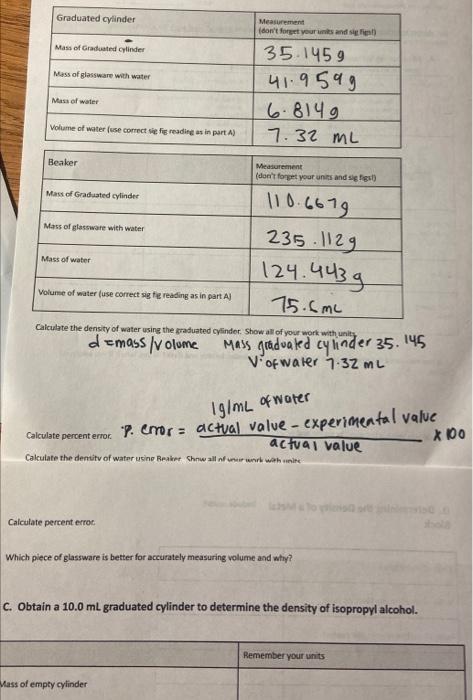 Graduated cylinder
Measurement
(don't forget your units and sig figs!)
Mass of Graduated cylinder
35.145g
Mass of glassware with water
41.959g
Mass of water
6.814g
Volume of water (use correct sig fig reading as in part A)
7.32 mL
Beaker
Measurement
(don't forget your units and sig figs!)
Mass of Graduated cylinder
110.667g
Mass of glassware with water
235.112g
Mass of water
124.443g
Volume of water (use correct sig fig reading as in part A)
75.6mL
Calculate the density of water using the graduated cylinder. Show all of your work with units
d=mass/volume Mass graduated cylinder 35.145
V of water 7.32 mL
1g/mL of water
Calculate percent error. P. error = actual value - experimental value
actual value
x 100
Calculate the density of water using Beaker Show all of your work with units
Calculate percent error.
Which piece of glassware is better for accurately measuring volume and why?
C. Obtain a 10.0 mL graduated cylinder to determine the density of isopropyl alcohol.
Remember your units
Mass of empty cylinder